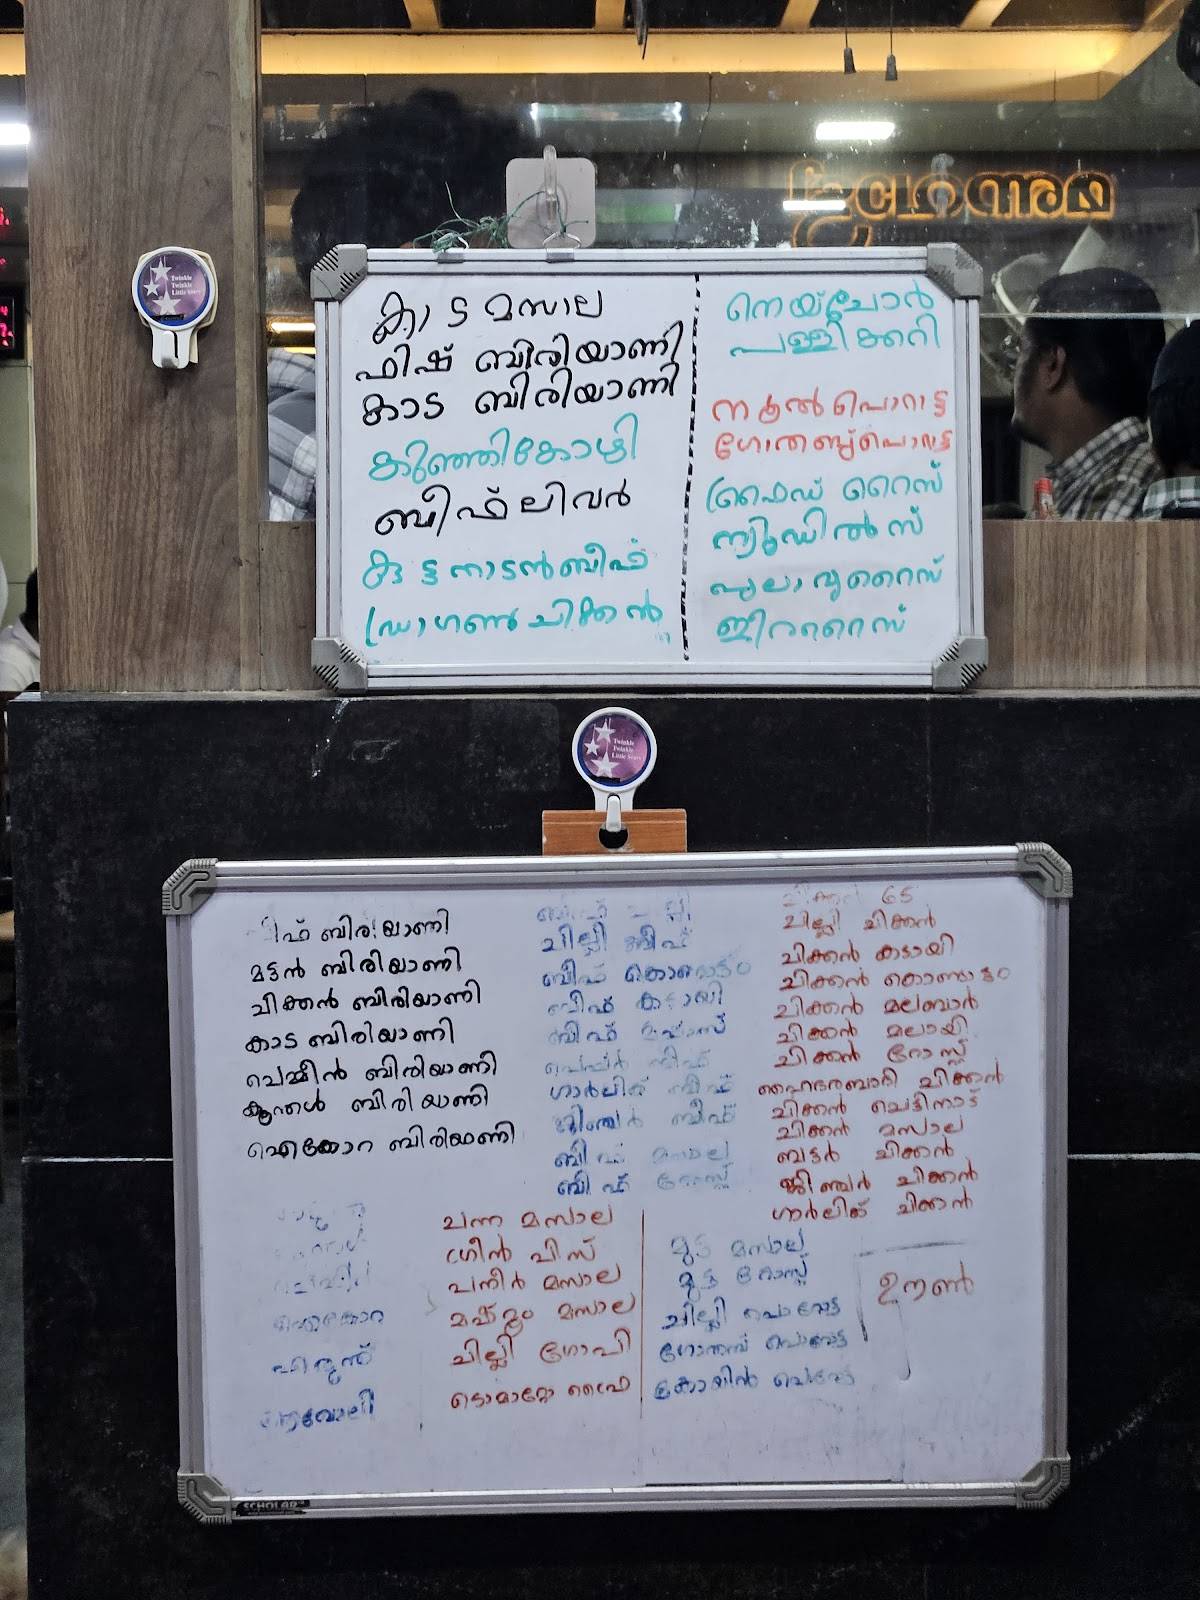 Twinkle
Twinkle
Little Stars
കാട മസാല
ഫിഷ് ബിരിയാണി
കാട ബിരിയാണി
കുഞ്ഞികോഴി
ബീഫ് ലിവർ
കുട്ടനാടൻ ബീഫ്
ഡ്രാഗൺ ചിക്കൻ
നെയ്ചോർ
പള്ളിക്കറി
നൂൽപൊറാട്ട
ഗോതമ്പ്പൊറട്ട
ഫ്രൈഡ് റൈസ്
ന്യൂഡിൽസ്
പുലാവുറൈസ്
ജീററൈസ്
Twinkle
Twinkle
Little Stars
ബിരിയാണി
മട്ടൻ ബിരിയാണി
ചിക്കൻ ബിരിയാണി
കാട ബിരിയാണി
ചെമ്മീൻ ബിരിയാണി
കൂന്തൾ ബിരിയാണി
ഐക്കോറ ബിരിയാണി
ചില്ലി ബീഫ്
ബീഫ് കൊണ്ടാട്ടം
ബീഫ് കടായി
ബീഫ്
ബീഫ്
ഗാർലിക് ബീഫ്
ജിഞ്ചർ ബീഫ്
ബീഫ് മസാല
ബീഫ് റോസ്റ്റ്
ചിക്കൻ 65
ചില്ലി ചിക്കൻ
ചിക്കൻ കടായി
ചിക്കൻ കൊണ്ടാട്ടം
ചിക്കൻ മലബാർ
ചിക്കൻ മലായി
ചിക്കൻ റോസ്റ്റ്
ഹൈദരബാദി ചിക്കൻ
ചിക്കൻ ചെട്ടിനാട്
ചിക്കൻ മസാല
ബട്ടർ ചിക്കൻ
ജിഞ്ചർ ചിക്കൻ
ഗാർലിക് ചിക്കൻ
ഐക്കോറ
ആവോലി
ചന്ന മസാല
ഗ്രീൻ പീസ്
പനീർ മസാല
മഷ്റൂം മസാല
ചില്ലി ഗോപി
ടൊമാറ്റോ ഫ്രൈ
മുട്ട മസാല
മുട്ട റോസ്റ്റ്
ചില്ലി പൊറോട്ട
ഗോതമ്പ് പൊറോട്ട
കോയിൻ പൊറോട്ട
ഊൺ
SCHOLAR